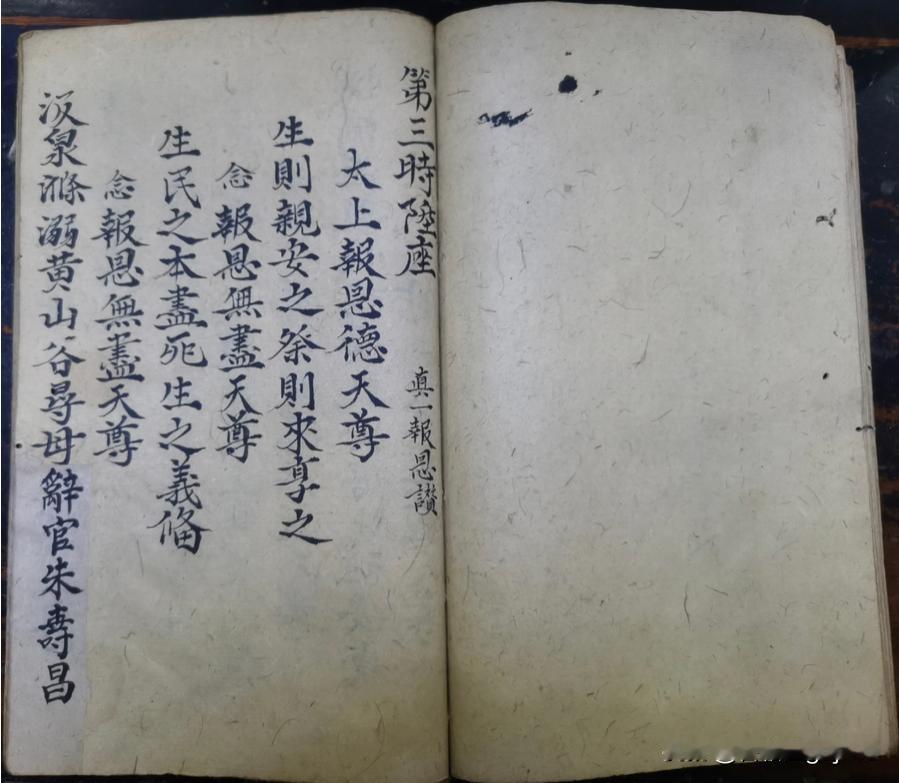 第三時陞座 真一報恩讃
太上報恩德天尊
生則親安之祭則來享之
念報恩無盡天尊
生民之本盡死生之義俻
念報恩無盡天尊
汲泉滌溺黄山谷尋母辭官朱壽昌